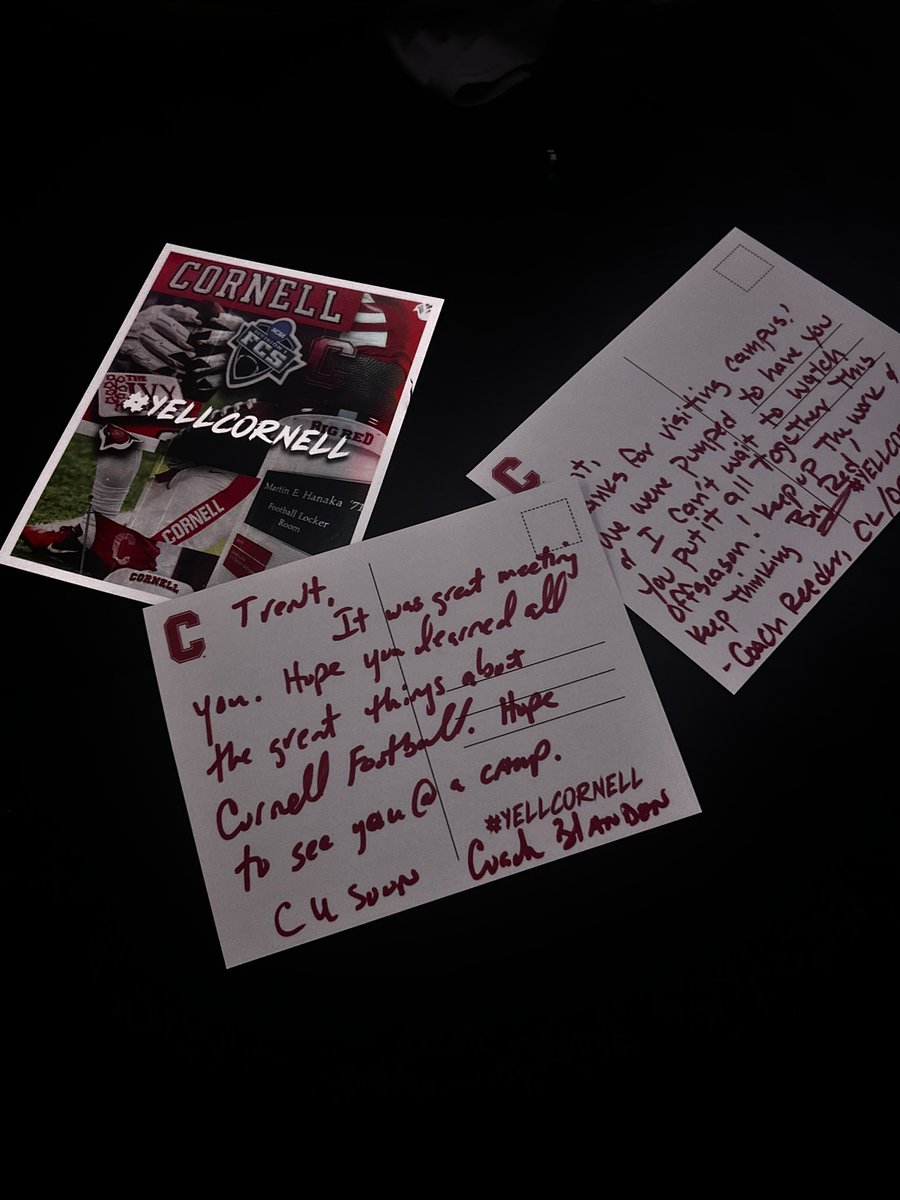 CORNELL
NCAA
DIVISION I
FCS
C
THE
IVY
#YELLCORNELL
BIG RED
Martin E. Hanaka '71
Football Locker
Room
CORNELL
C
CORNELL
C
Trent,
It was great meeting
you. Hope you learned all
the great things about
Cornell Football. Hope
to see you @ a camp.
#YELLCORNELL
C U Soon Coach BLANDEN
C
for visiting campus!
we were pumped to have you
& I can't wait to watch
you put it all together this
offseason. Keep up the work &
keep thinking Big Red!
#YELLCO
- Coach Reeder, OL/